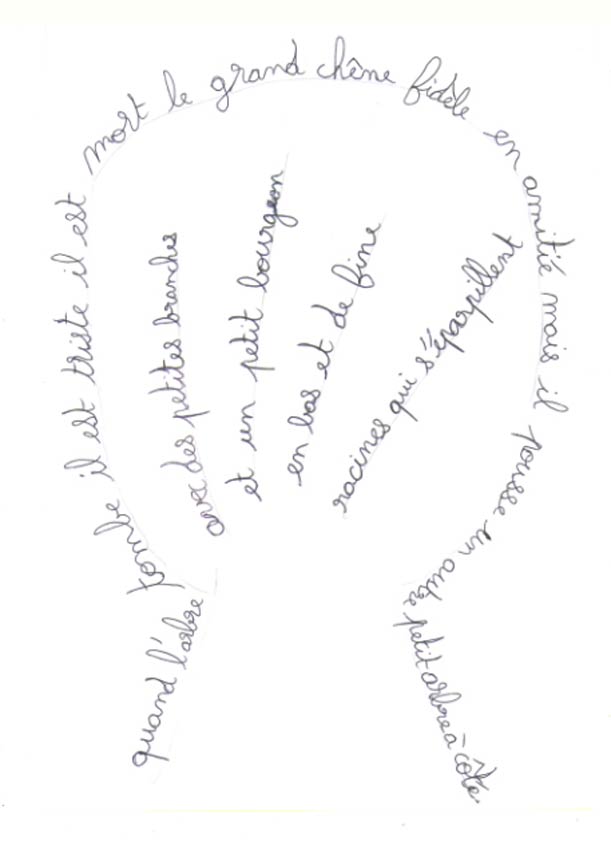 quand l'arbre tombe il est triste il est mort le grand chêne fidèle en amitié mais il pousse un autre petit arbre à côté
avec des petites branches
et un petit bourgeon
en bas et de fine
racines qui s'éparpillent